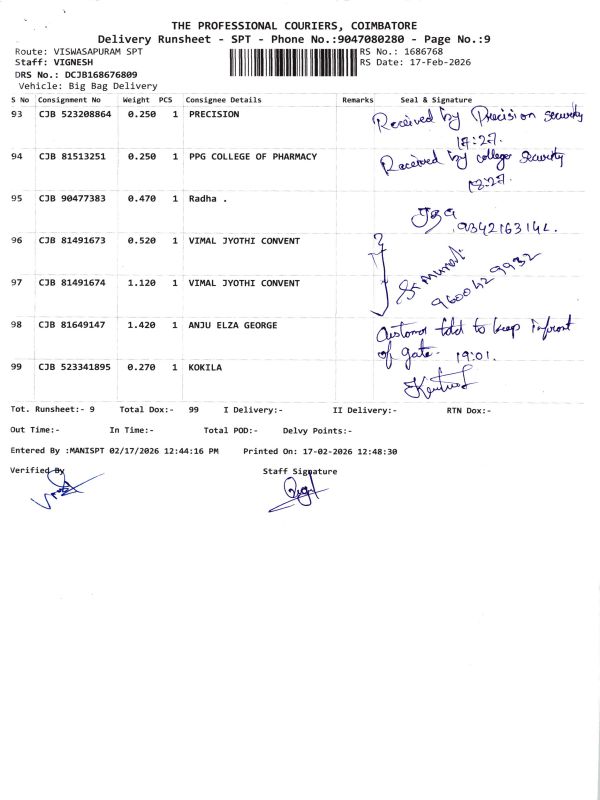 THE PROFESSIONAL COURIERS, COIMBATORE
Delivery Runsheet - SPT - Phone No.:9047080280 - Page No.:9
Route: VISWASAPURAM SPT RS No.: 1686768
Staff: VIGNESH RS Date: 17-Feb-2026
DRS No.: DCJB168676809
Vehicle: Big Bag Delivery
S No Consignment No Weight PCS Consignee Details Remarks Seal & Signature
93 CJB 523208864 0.250 1 PRECISION Received by Precision security
17:27.
94 CJB 81513251 0.250 1 PPG COLLEGE OF PHARMACY Received by college security
95 CJB 90477383 0.470 1 Radha .
96 CJB 81491673 0.520 1 VIMAL JYOTHI CONVENT
97 CJB 81491674 1.120 1 VIMAL JYOTHI CONVENT 9600429932
98 CJB 81649147 1.420 1 ANJU ELZA GEORGE Customer told to keep infront
of gate- 19:01.
99 CJB 523341895 0.270 1 KOKILA
Tot. Runsheet:- 9 Total Dox:- 99 I Delivery:- II Delivery:- RTN Dox:-
Out Time:- In Time:- Total POD:- Delvy Points:-
Entered By :MANISPT 02/17/2026 12:44:16 PM Printed On: 17-02-2026 12:48:30
Verified By Staff Signature